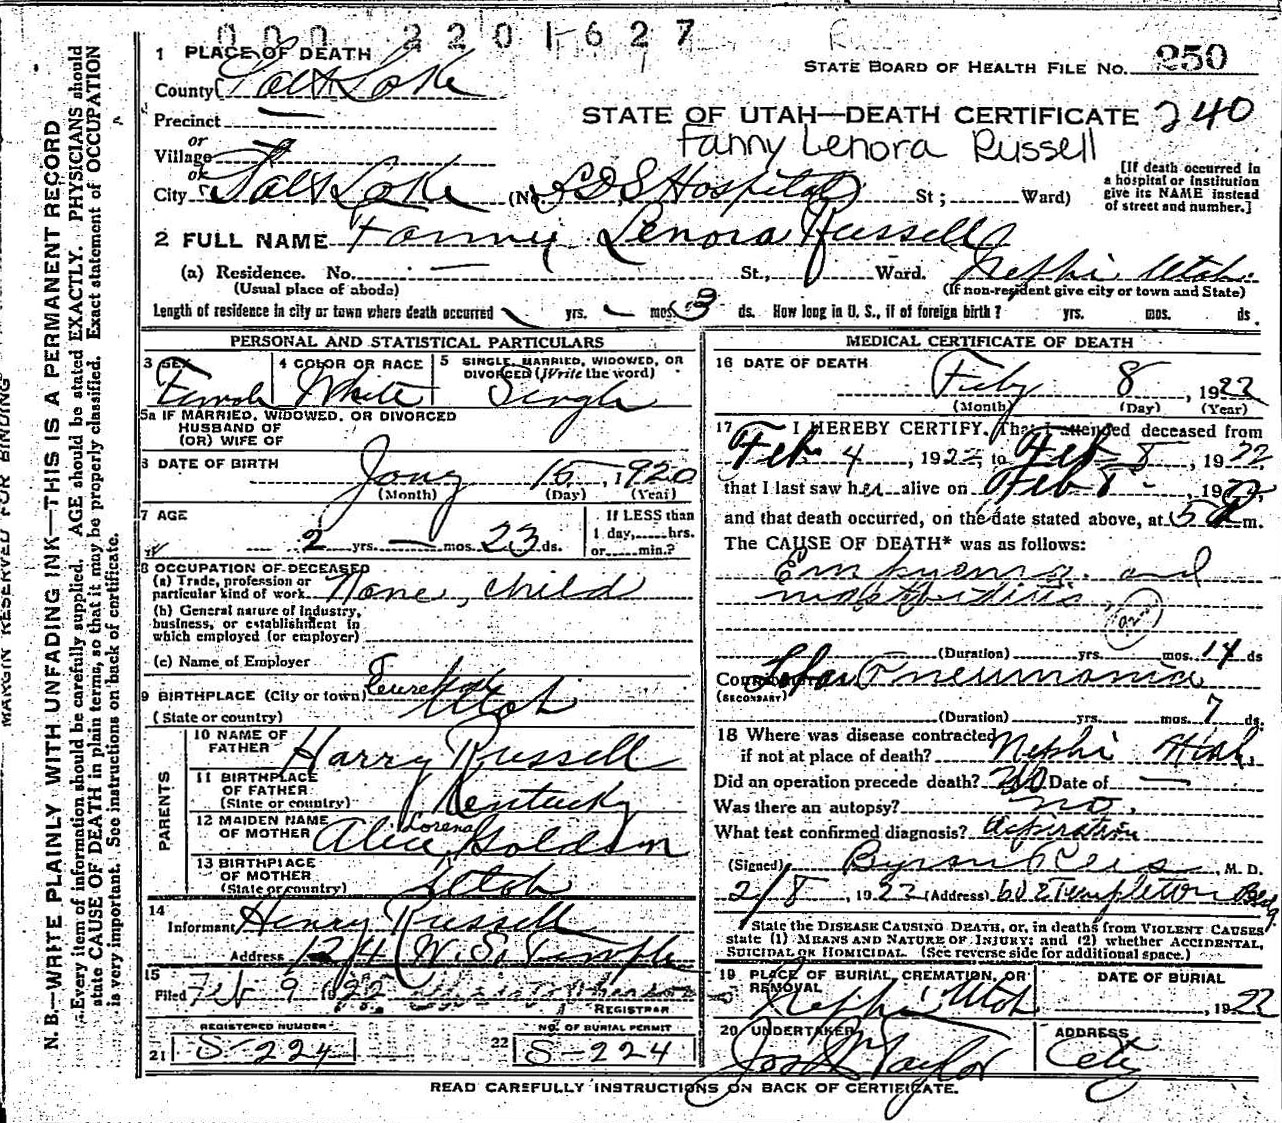 000 2201627
1 PLACE OF DEATH
STATE BOARD OF HEALTH FILE NO. 250
County Salt Lake
STATE OF UTAH—DEATH CERTIFICATE 240
Precinct
or
Fanny Lenora Russell
Village
or
[If death occurred in a hospital or institution give its NAME instead of street and number.]
City Salt Lake (No. LDS Hospital St; Ward)
2 FULL NAME Fanny Lenora Russell
(a) Residence. No. St., Ward. Nephi Utah
(Usual place of abode) (If non-resident give city or town and State)
Length of residence in city or town where death occurred yrs. mos. 3 ds. How long in U. S., if of foreign birth? yrs. mos. ds.
PERSONAL AND STATISTICAL PARTICULARS
3 SEX 4 COLOR OR RACE 5 SINGLE, MARRIED, WIDOWED, OR DIVORCED (Write the word)
Female White Single
5a IF MARRIED, WIDOWED, OR DIVORCED
HUSBAND OF
(OR) WIFE OF
6 DATE OF BIRTH Jany 15, 1920
(Month) (Day) (Year)
7 AGE 2 yrs. — mos. 23 ds.
If LESS than
1 day, hrs.
or min.?
8 OCCUPATION OF DECEASED
(a) Trade, profession or particular kind of work None, child
(b) General nature of industry, business, or establishment in which employed (or employer)
(c) Name of Employer
9 BIRTHPLACE (City or town) Eureka
(State or country) Utah
PARENTS
10 NAME OF FATHER Harry Russell
11 BIRTHPLACE OF FATHER (State or country) Kentucky
12 MAIDEN NAME OF MOTHER Alice Lorena Goldson
13 BIRTHPLACE OF MOTHER (State or country) Utah
14 Informant Henry Russell
Address 124 W. So. Temple
15 Filed Feb 9 1922
REGISTRAR
REGISTERED NUMBER
21 S-224
NO. OF BURIAL PERMIT
22 S-224
MEDICAL CERTIFICATE OF DEATH
16 DATE OF DEATH Feby 8, 1922
(Month) (Day) (Year)
17 I HEREBY CERTIFY, That I attended deceased from
Feb. 4, 1922, to Feb 8, 1922
that I last saw her alive on Feb 8, 1922
and that death occurred, on the date stated above, at 5 m.
The CAUSE OF DEATH* was as follows:
Empyema and
(Duration) yrs. mos. 14 ds
Contributory Lobar Pneumonia
(SECONDARY)
(Duration) yrs. mos. 7 ds.
18 Where was disease contracted
if not at place of death? Nephi Utah.
Did an operation precede death? no Date of —
Was there an autopsy? no.
What test confirmed diagnosis? aspiration
(Signed) Byron Rees, M. D.
2/8, 1922 (Address) 602 Templeton Bldg
* State the DISEASE CAUSING DEATH, or, in deaths from VIOLENT CAUSES,
state (1) MEANS AND NATURE OF INJURY; and (2) whether ACCIDENTAL,
SUICIDAL OR HOMICIDAL. (See reverse side for additional space.)
19 PLACE OF BURIAL, CREMATION, OR REMOVAL DATE OF BURIAL
Nephi Utah , 1922
20 UNDERTAKER ADDRESS
Jos Wm Taylor City
READ CAREFULLY INSTRUCTIONS ON BACK OF CERTIFICATE.
MARGIN RESERVED FOR BINDING
N. B.—WRITE PLAINLY WITH UNFADING INK—THIS IS A PERMANENT RECORD
Every item of information should be carefully supplied. AGE should be stated EXACTLY. PHYSICIANS should
state CAUSE OF DEATH in plain terms, so that it may be properly classified. Exact statement of OCCUPATION
is very important. See instructions on back of certificate.